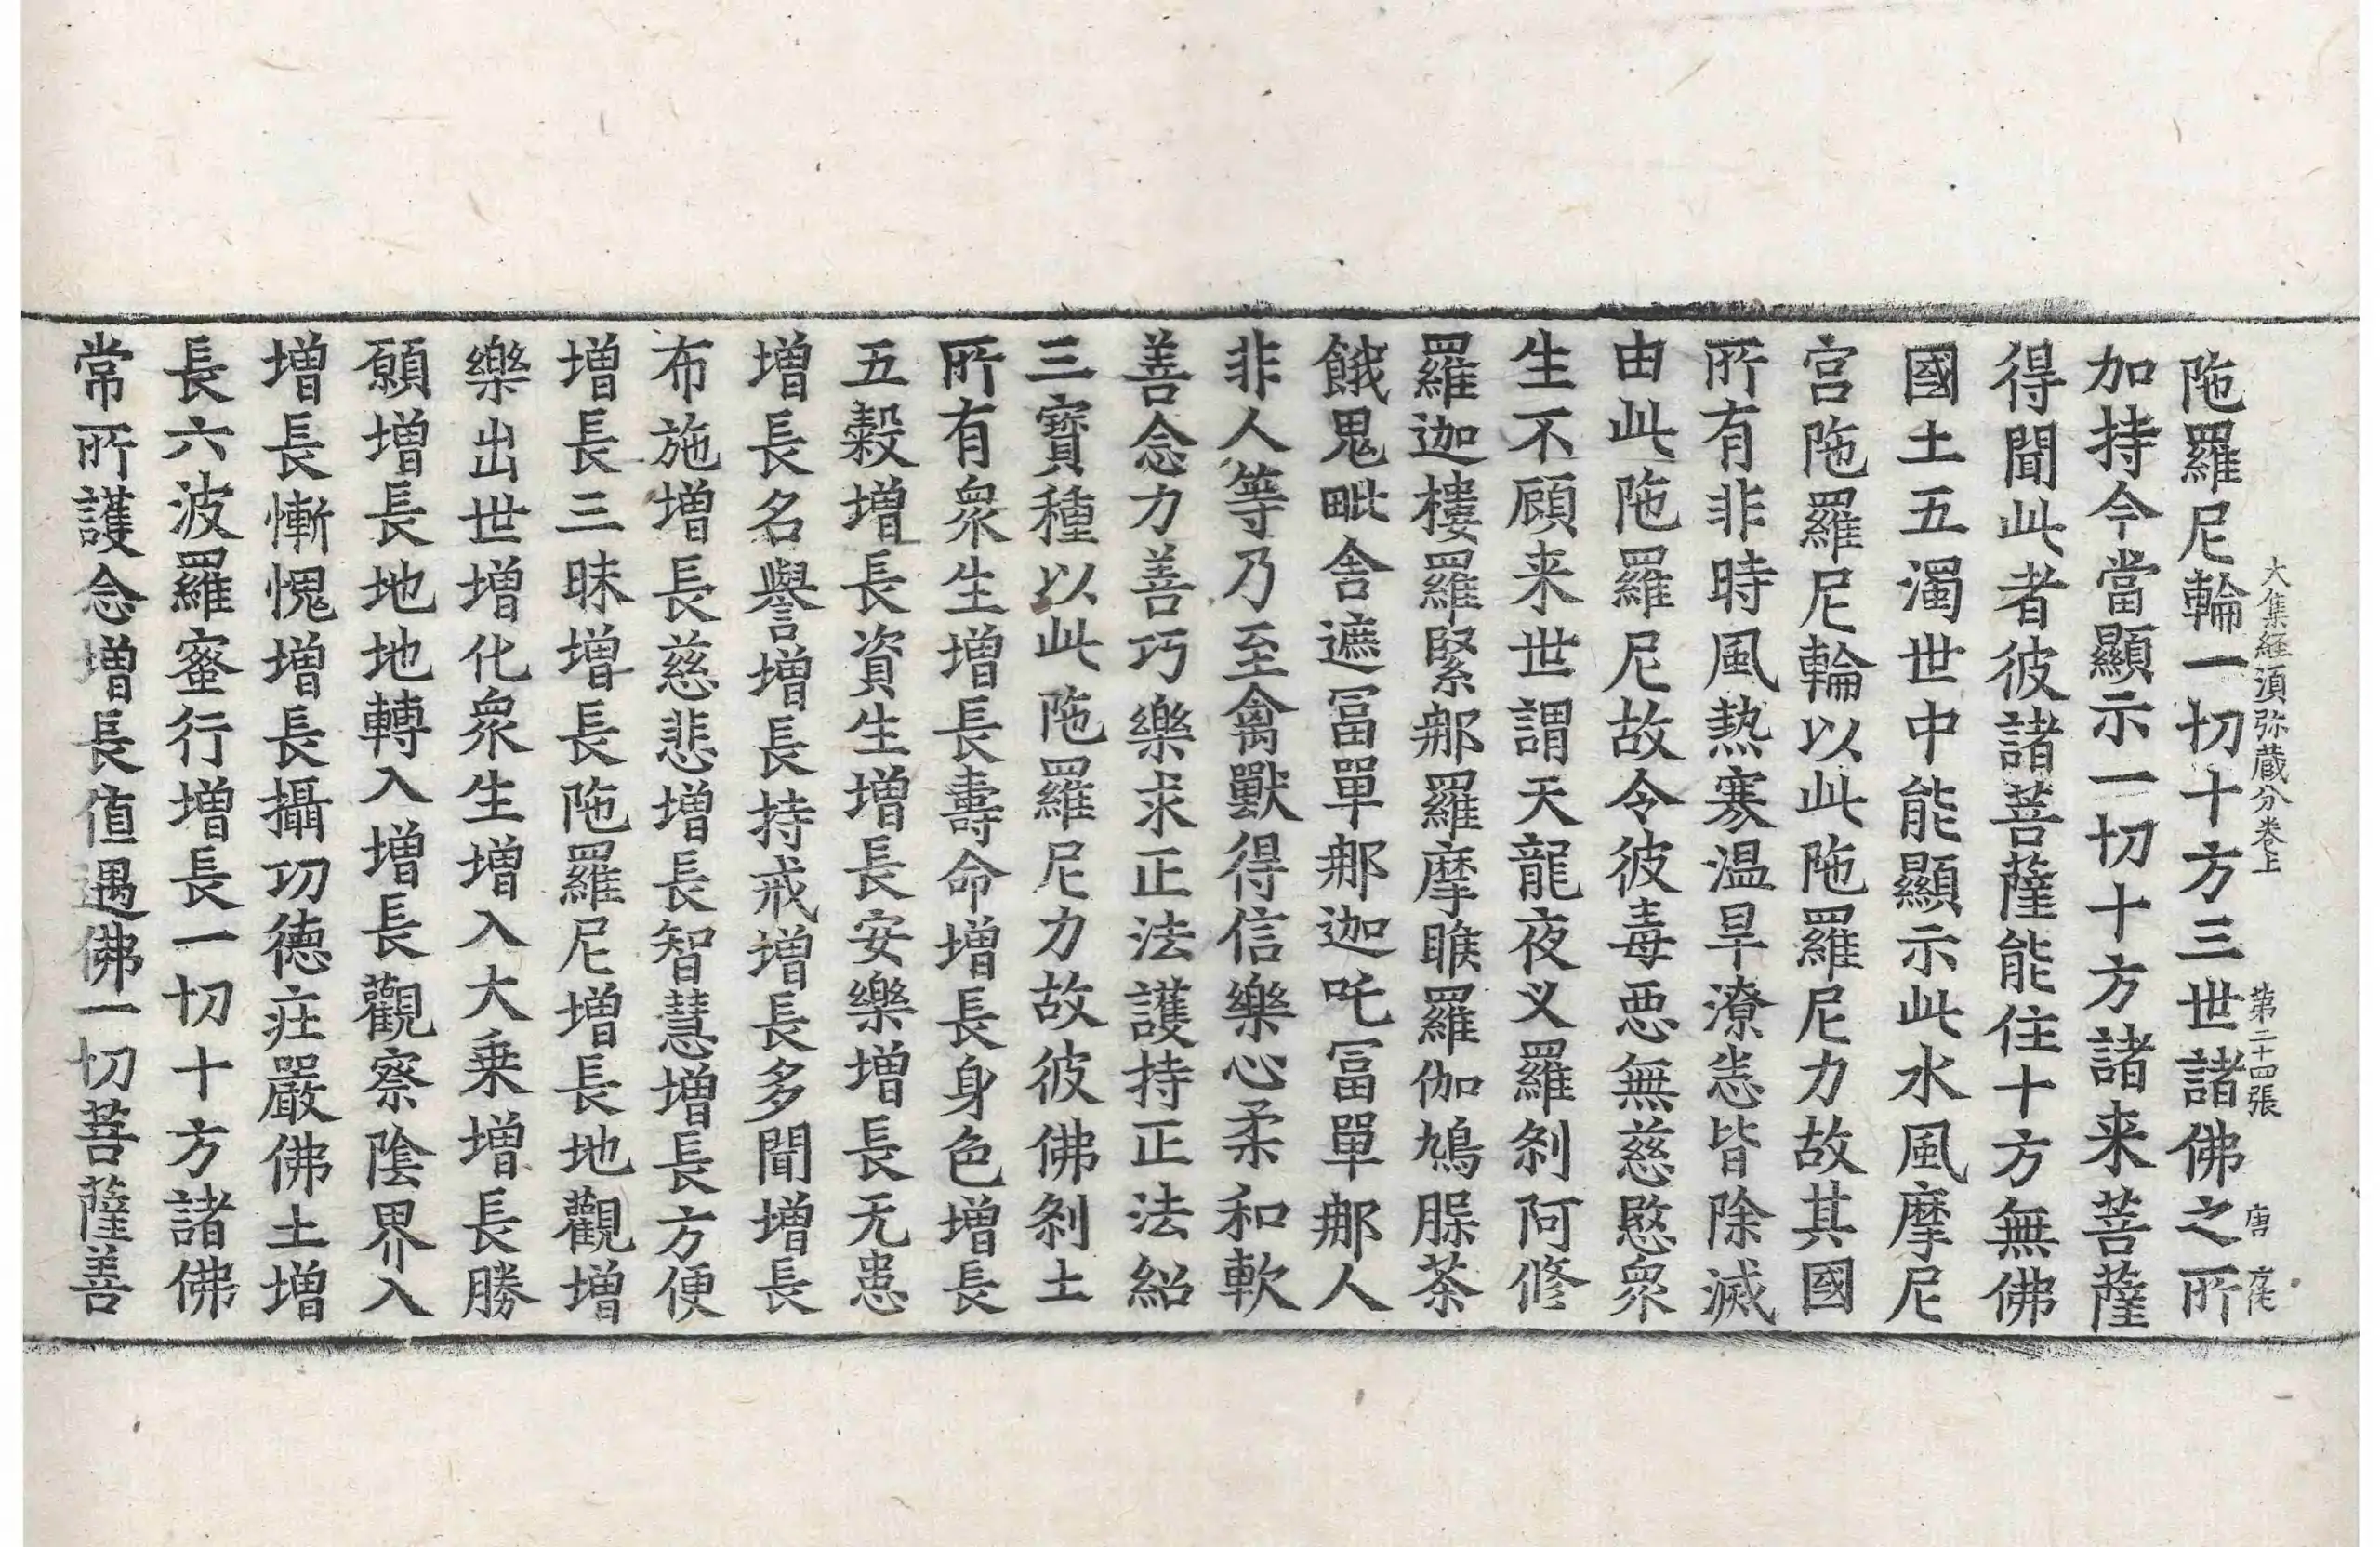 大集経湏弥蔵分卷上　第二十四張　唐
陁羅尼輪一切十方三世諸佛之所
加持今當顯示一切十方諸来菩薩
得聞此者彼諸菩薩能住十方無佛
國土五濁世中能顯示此水風摩尼
宫陁羅尼輪以此陁羅尼力故其國
所有非時風熱寒温旱潦恙皆除滅
由此陁羅尼故令彼毒悪無慈愍衆
生不顧来世謂天龍夜义羅刹阿修
羅迦樓羅緊那羅摩睺羅伽鳩脲荼
餓鬼毗舎遮冨單那迦吒冨單那人
非人等乃至禽獸得信樂心柔和軟
善念力善巧樂求正法護持正法紹
三寶種以此陁羅尼力故彼佛刹土
所有衆生增長壽命增長身色增長
五穀增長資生增長安樂增長无患
增長名譽增長持戒增長多聞增長
布施增長慈悲增長智慧增長方便
增長三昧增長陁羅尼增長地觀增
樂出世增化衆生增入大乗增長勝
願增長地地轉入增長觀察陰界入
增長慚愧增長攝功德莊嚴佛土增
長六波羅蜜行增長一切十方諸佛
常所護念增長值遇佛一切菩薩善